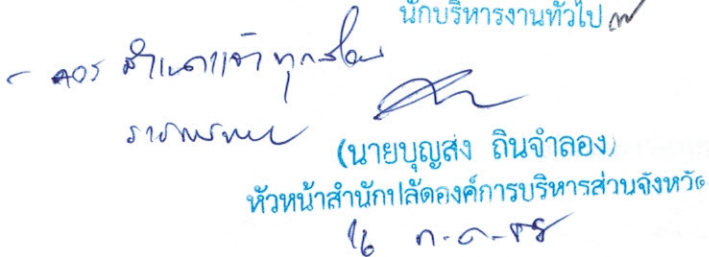 นักบริหารงานทั่วไป
- ควร สำเนาแจ้งทุกส่วน
ราชการ
(นายบุญส่ง ถินจำลอง)
หัวหน้าสำนักปลัดองค์การบริหารส่วนจังหวัด
16 ก.ค.